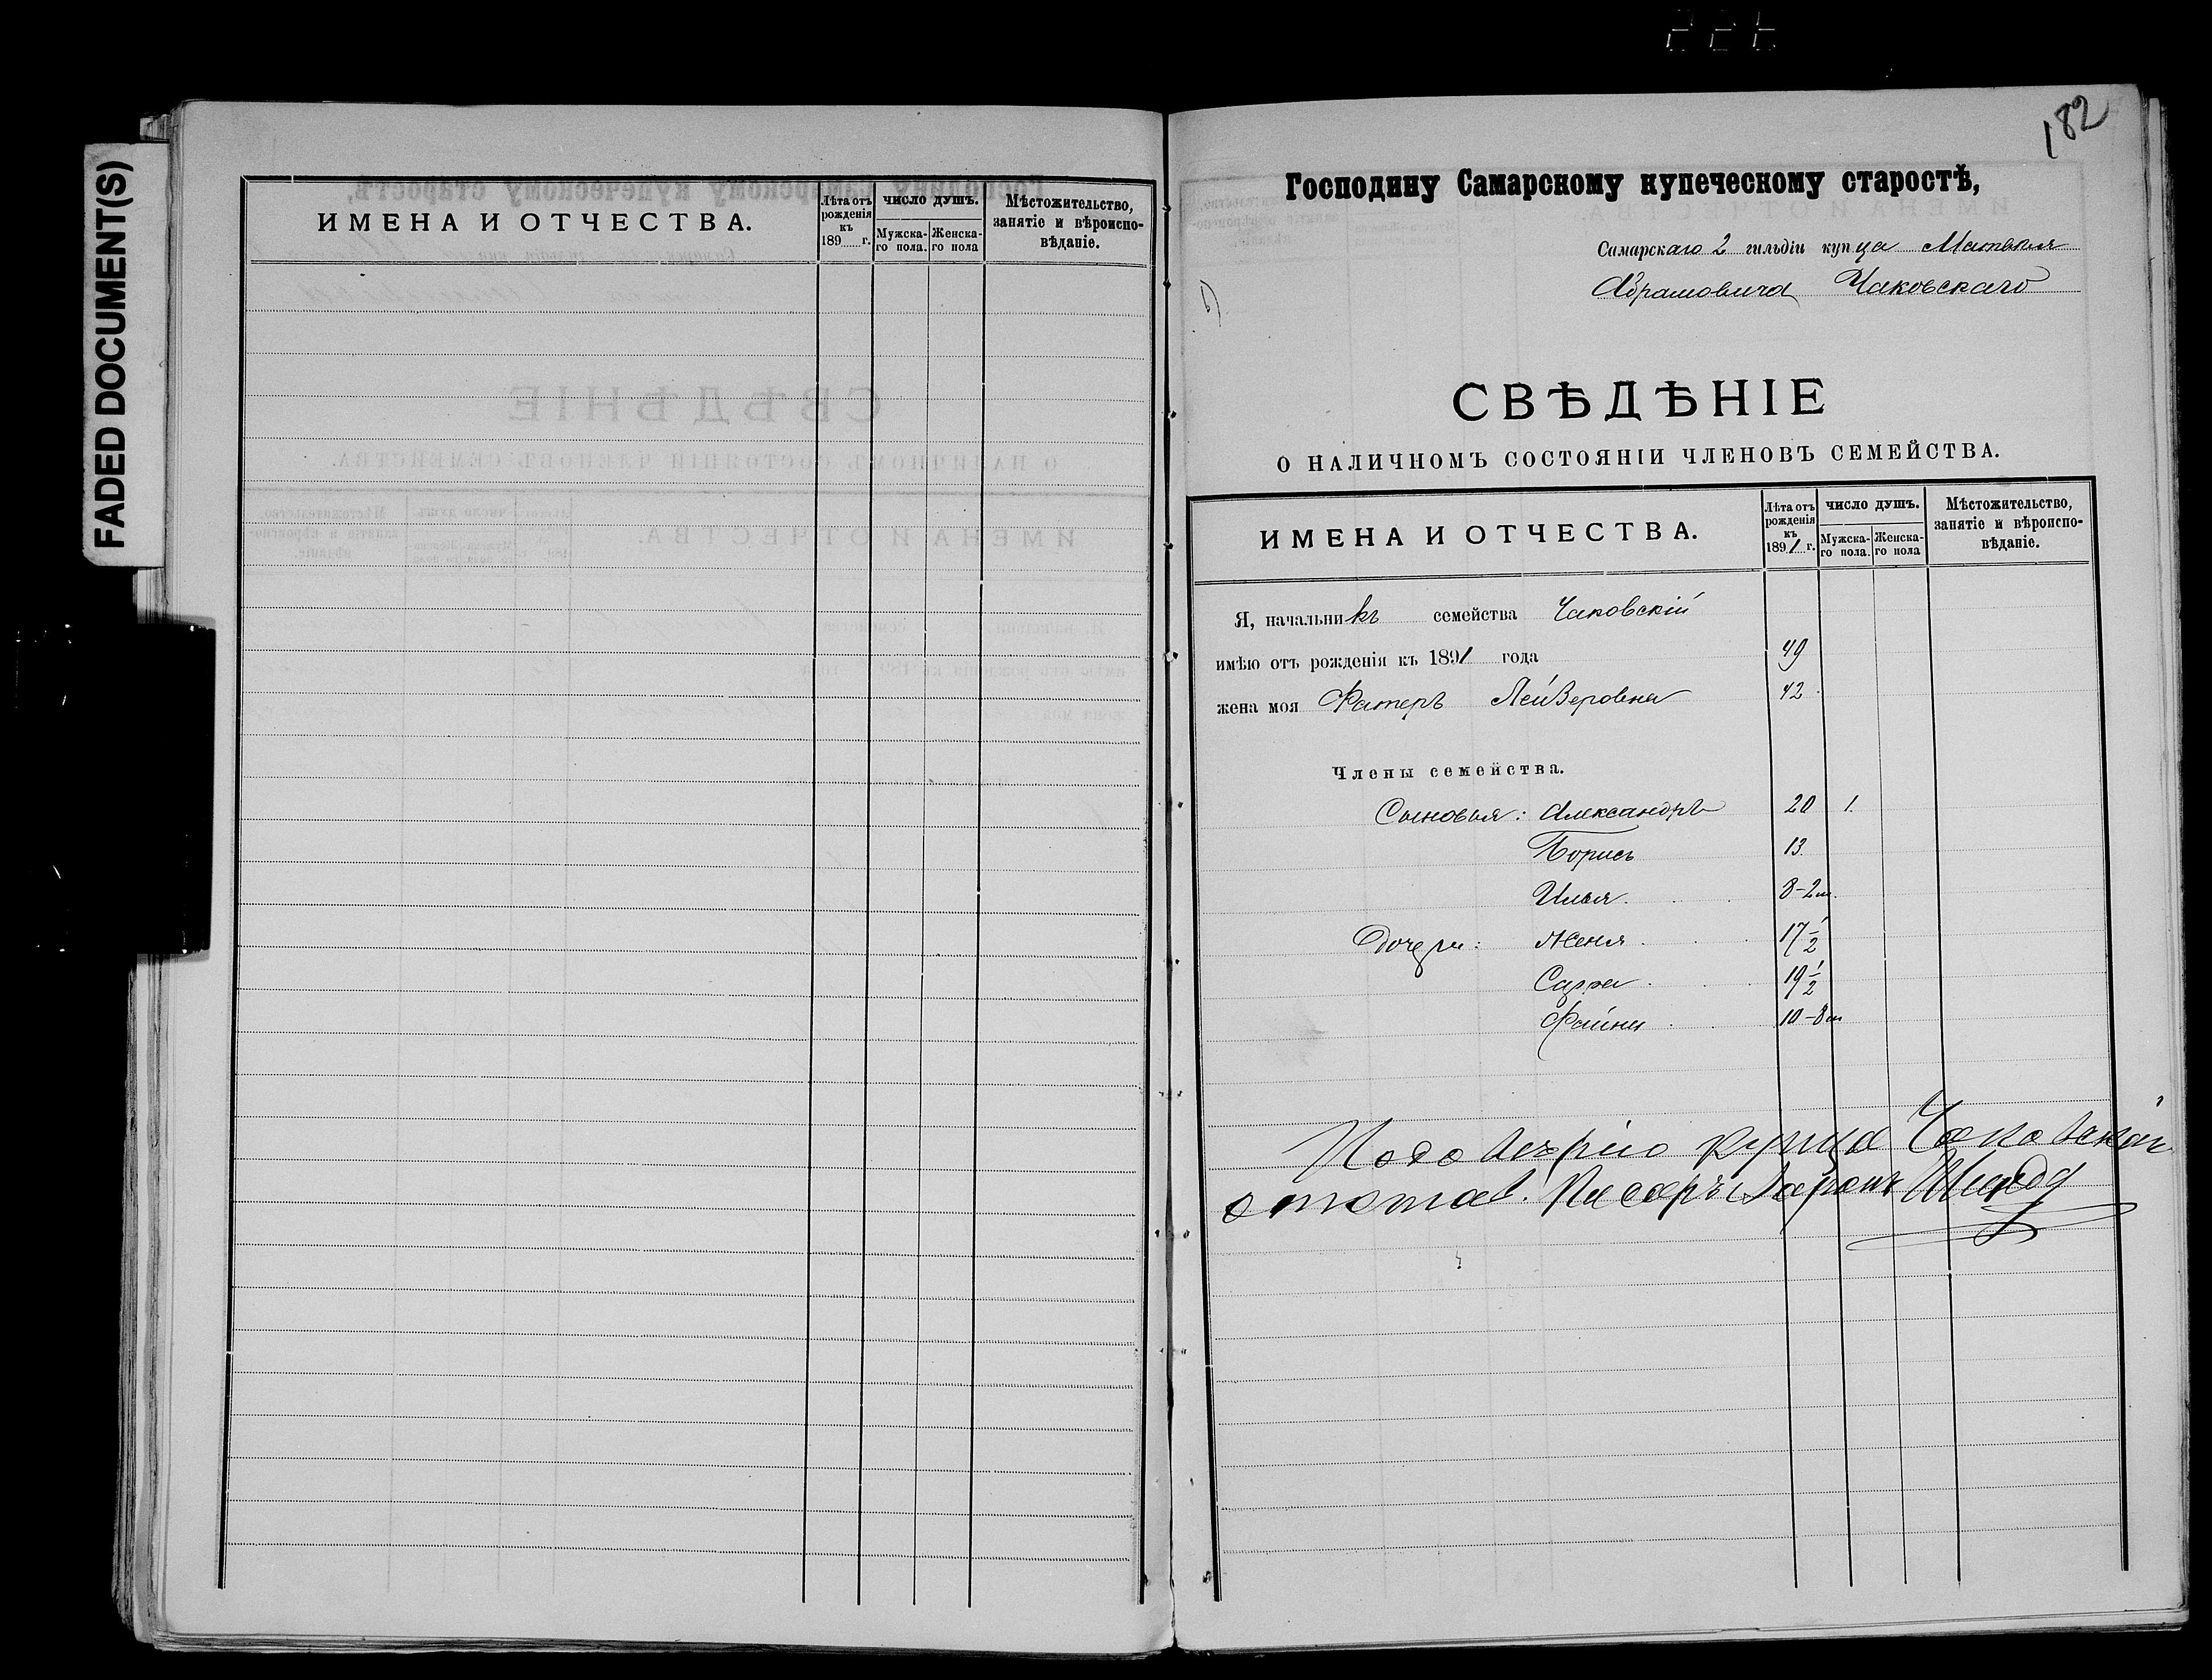 FADED DOCUMENT(S)
ИМЕНА И ОТЧЕСТВА.
Лѣта отъ рожденія къ 189 г.
ЧИСЛО ДУШЪ.
Мужска-го пола.
Женска-го пола
Мѣстожительство, занятіе и вѣроиспо-вѣданіе.
182
Господину Самарскому купеческому старостѣ,
Самарскаго 2 гильдіи купца Матвѣя
Абрамовича Чаковскаго
СВѢДѢНІЕ
О НАЛИЧНОМЪ СОСТОЯНІИ ЧЛЕНОВЪ СЕМЕЙСТВА.
ИМЕНА И ОТЧЕСТВА.
Лѣта отъ рожденія къ 1891 г.
ЧИСЛО ДУШЪ.
Мужска-го пола.
Женска-го пола
Мѣстожительство, занятіе и вѣроиспо-вѣданіе.
Я, начальникъ семейства Чаковскій
имѣю отъ рожденія къ 1891 года 49
жена моя Лейзеровна 42
Члены семейства.
Сыновья: Александръ 20 1.
Борисъ 13.
Илья. 8-2м.
Дочери: Женя. 17 1/2
Сарра. 19 1/2
Файна 10-8м
купца Чаковскаго